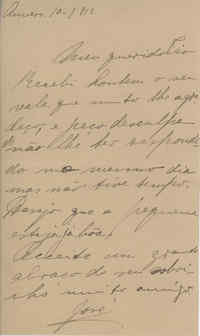 Meu querido Tio
Recebi hontem o seu
vale que muito lhe agra
deço, e peço desculpa
de não lhe ter respondi
do no mesmo dia
mas não tive tempo.
Desejo que a pequena
esteja já boa.
Acceite um grande
abraço do seu sobri
nho muito amigo
José